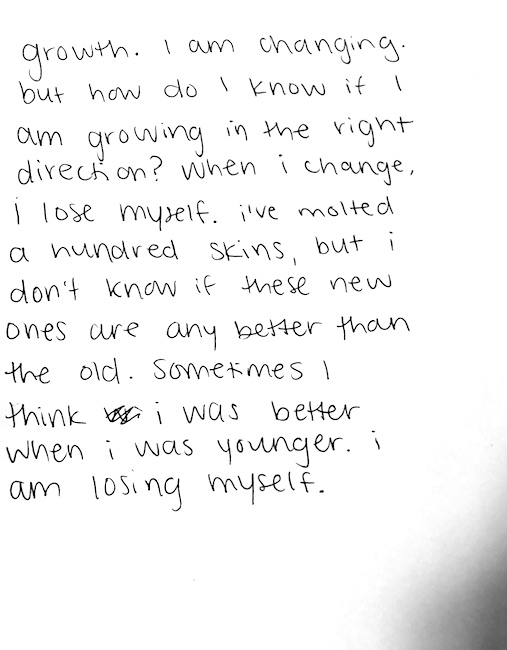 growth. I am changing.
but how do I know if I
am growing in the right
direction? when i change,
i lose myself. i've molted
a hundred skins, but i
don't know if these new
ones are any better than
the old. sometimes I
think i was better
when i was younger. i
am losing myself.